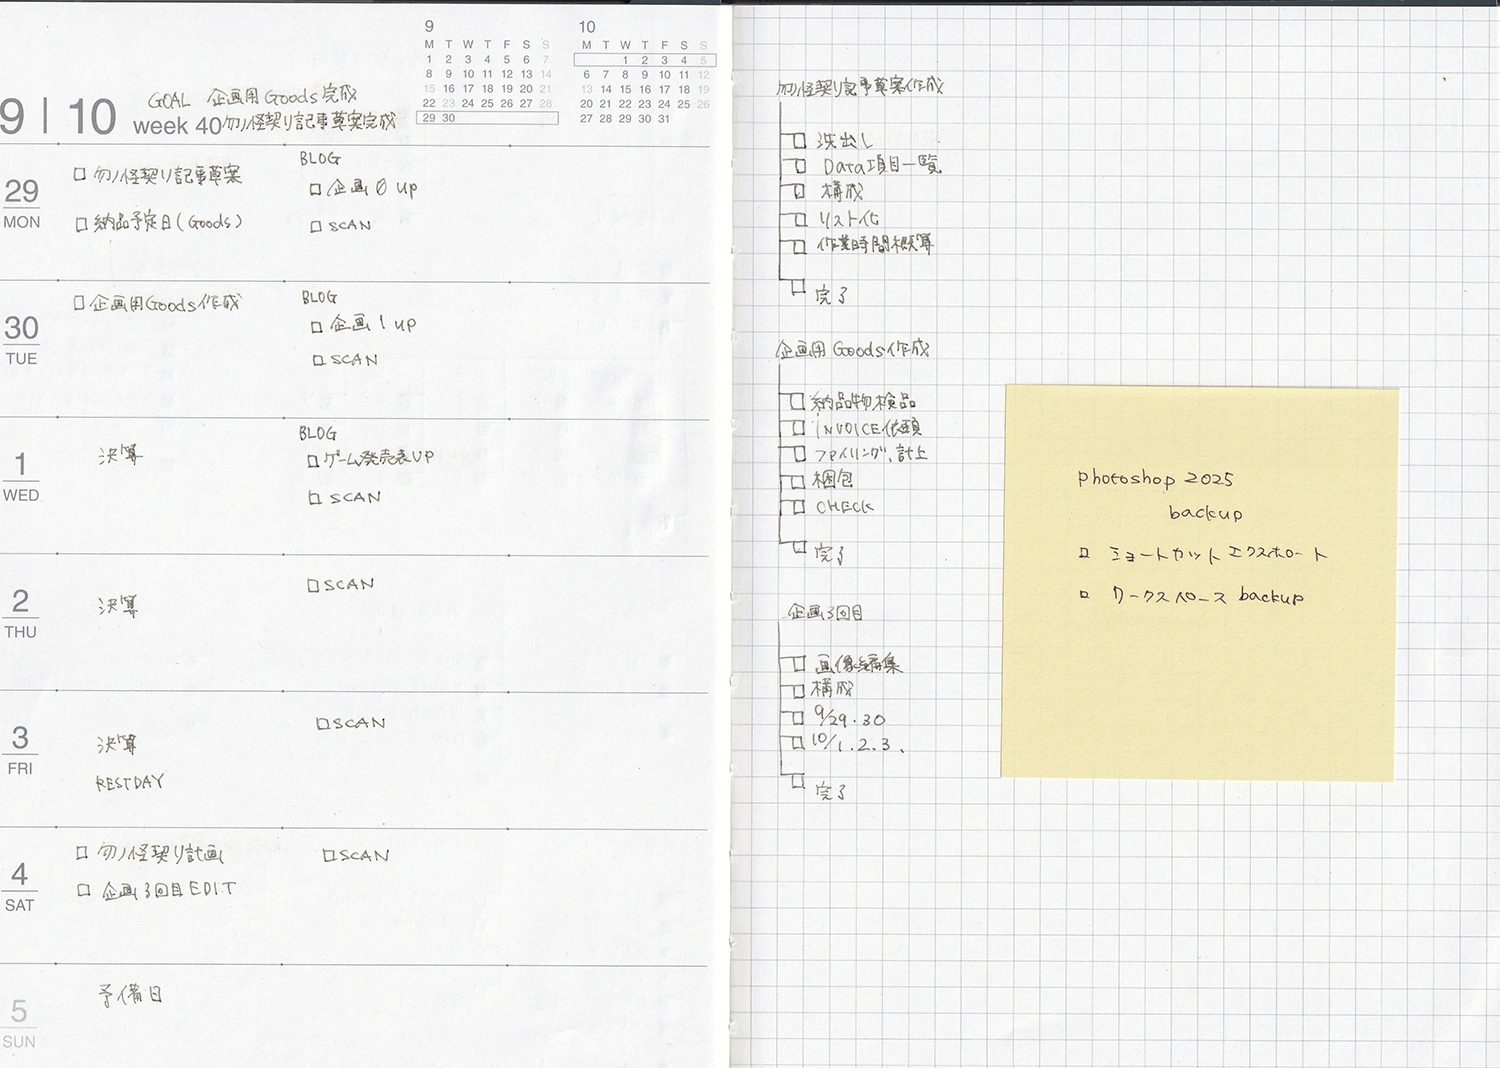 9 | 10
GOAL 企画用Goods完成
week 40 勿ノ怪契り記事草案完成
9
M T W T F S S
1 2 3 4 5 6 7
8 9 10 11 12 13 14
15 16 17 18 19 20 21
22 23 24 25 26 27 28
29 30
10
M T W T F S S
1 2 3 4 5
6 7 8 9 10 11 12
13 14 15 16 17 18 19
20 21 22 23 24 25 26
27 28 29 30 31
29
MON
□ 勿ノ怪契り記事草案
□ 納品予定日(Goods)
BLOG
□ 企画0 up
□ SCAN
30
TUE
□ 企画用Goods作成
BLOG
□ 企画1 up
□ SCAN
1
WED
決算
BLOG
□ ゲーム発売表UP
□ SCAN
2
THU
決算
□ SCAN
3
FRI
決算
RESTDAY
□ SCAN
4
SAT
□ 勿ノ怪契り計画
□ 企画3回目EDIT
□ SCAN
5
SUN
予備日
勿ノ怪契り記事草案作成
□ 洗出し
□ Data項目一覧
□ 構成
□ リスト化
□ 作業時間概算
□ 完了
企画用Goods作成
□ 納品物検品
□ INVOICE依頼
□ ファイリング、計上
□ 梱包
□ CHECK
□ 完了
企画3回目
□ 画像編集
□ 構成
□ 9/29.30
□ 10/1.2.3.
□ 完了
photoshop 2025
backup
□ ショートカットエクスポート
□ ワークスペース backup